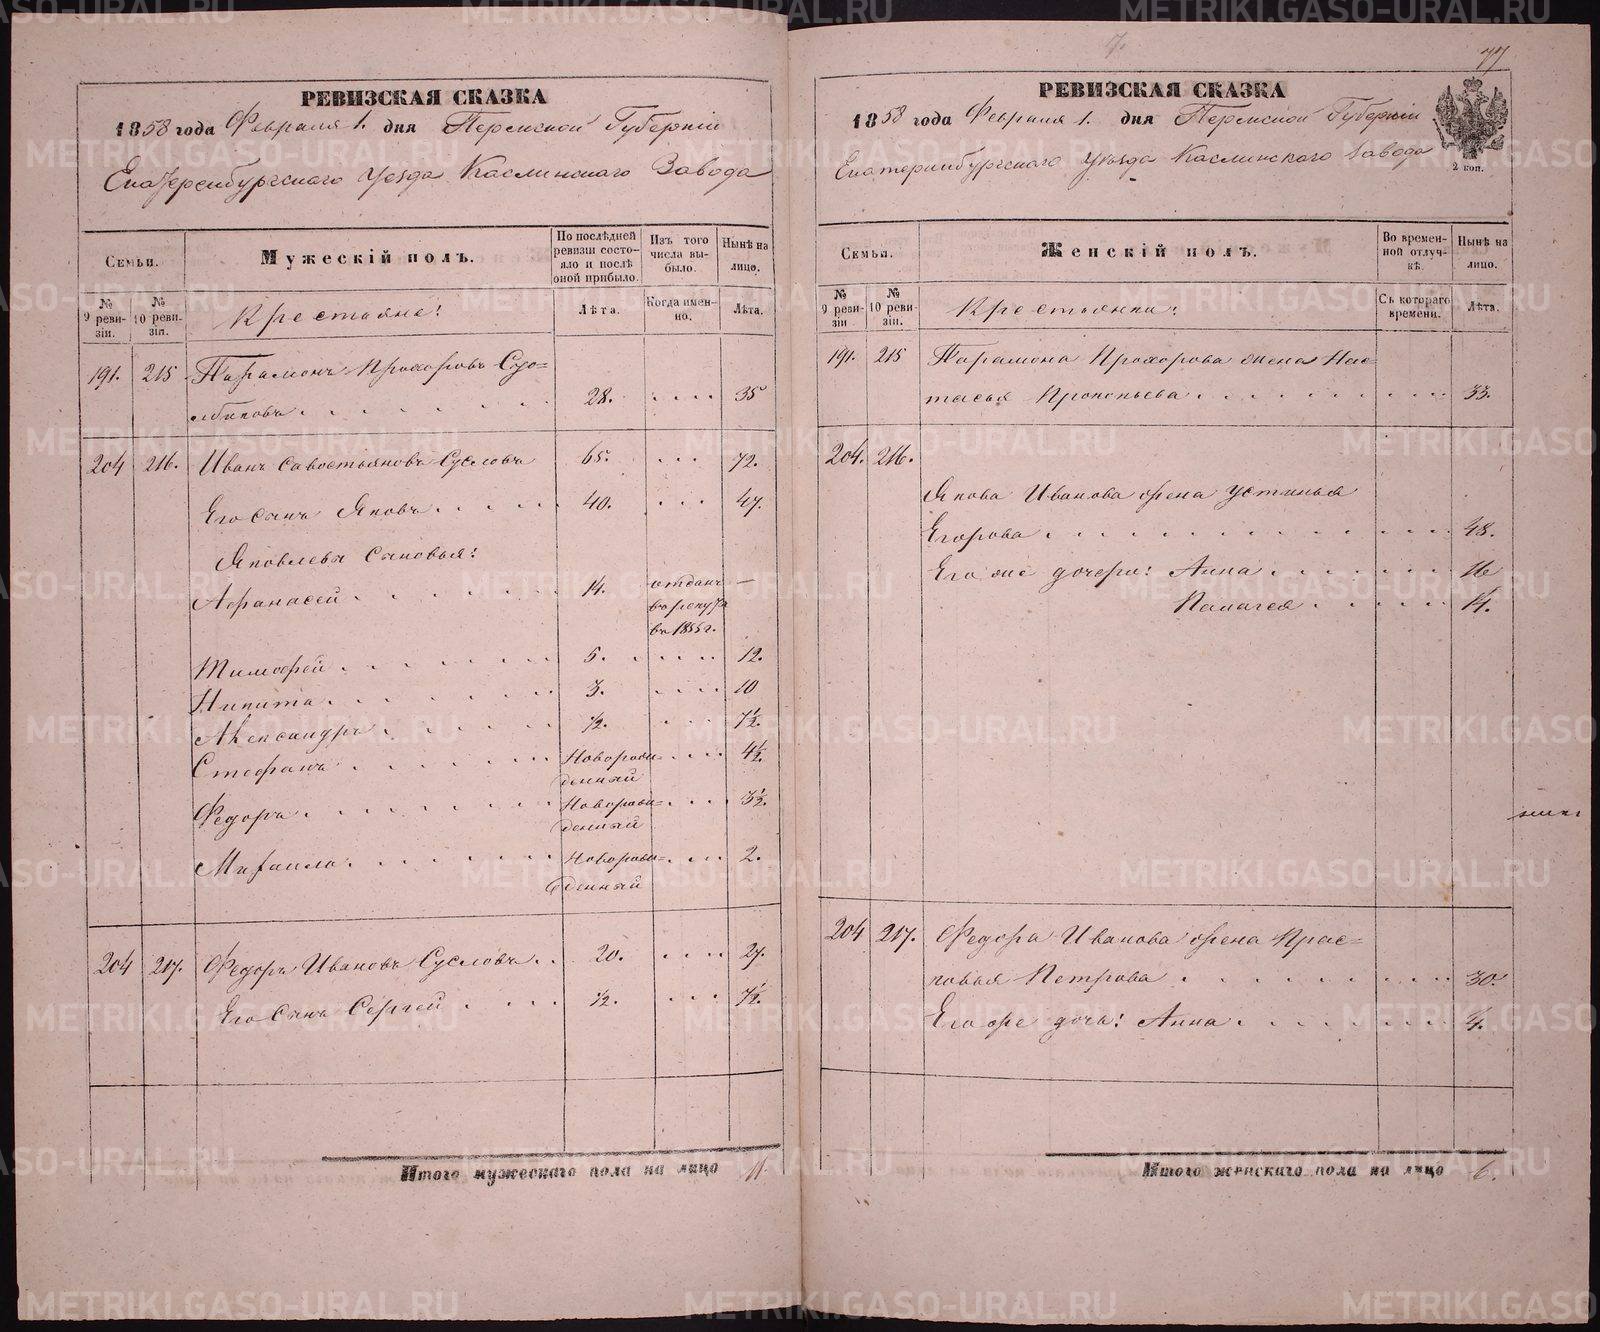 РЕВИЗСКАЯ СКАЗКА
1858 года Февраля 1. дня Пермской Губерніи
Екатеринбургскаго Уезда Каслинскаго Завода
Семьи.
Мужескій полъ.
По послѣдней ревизіи состояло и послѣ оной прибыло.
Изъ того числа выбыло.
Нынѣ на лицо.
№ 9 ревизіи.
№ 10 ревизіи.
Крестьяне:
Лѣта.
Когда именно.
Лѣта.
191. 215 Парамонъ Прохоровъ
28. .... 35
204 216. Иванъ Савостьяновъ Сусловъ 65. ... 72.
Его сынъ Яковъ..... 40. ... 47.
Яковлевы сыновья:
Афанасей....... 14. отданъ —
въ рекруты
въ 1855 г.
Тимофей....... 5. .... 12.
Никита....... 3. .... 10
Александръ...... 1/2. ... 7 1/2.
Стефанъ....... Новорож- ... 4 1/2.
денный
Федоръ....... Новорож= ... 3 1/2.
денный
Михаила...... Новорож=... 2.
денный
204 217. Федоръ Ивановъ Сусловъ.. 20. .... 27.
Его сынъ Сергей.... 1/2. ... 7 1/2.
Итого мужескаго пола на лицо 11.
7.
77
РЕВИЗСКАЯ СКАЗКА
1858 года Февраля 1. дня Пермской Губерніи
Екатеринбургскаго уѣзда Каслинскаго завода
2 коп.
Семьи.
Женскій полъ.
Во временной отлучкѣ.
Нынѣ на лицо.
№ 9 ревизіи
№ 10 ревизіи.
Крестьянки:
Съ котораго времени.
Лѣта.
191. 215 Парамона Прохорова жена Нас=
тасья Прокопьева....... 33.
204. 216.
Якова Иванова жена Устинья
Егорова........... 48.
Его же дочери: Анна...... 16
Палагея..... 14.
204 217. Федора Иванова жена Прас=
ковья Петрова........ 30.
Его же дочь: Анна........ 4.
Итого женскаго пола на лицо 6.
METRIKI.GASO-URAL.RU